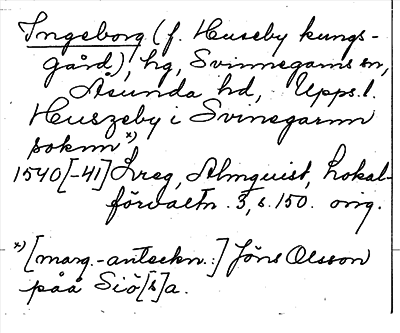 Ingeborg (f. Huseby kungs-
gård), hg, Svinnegarns sn,
Åsunda hd, Upps. l.
Huszeby i Svinegarnn
soknn *)
1540[-41] Lreg, Almquist, Lokal-
förvaltn. 3, s. 150. orig.
*) [marg.-anteckn.:] Jöns Olsson
påå Siö[s]a.